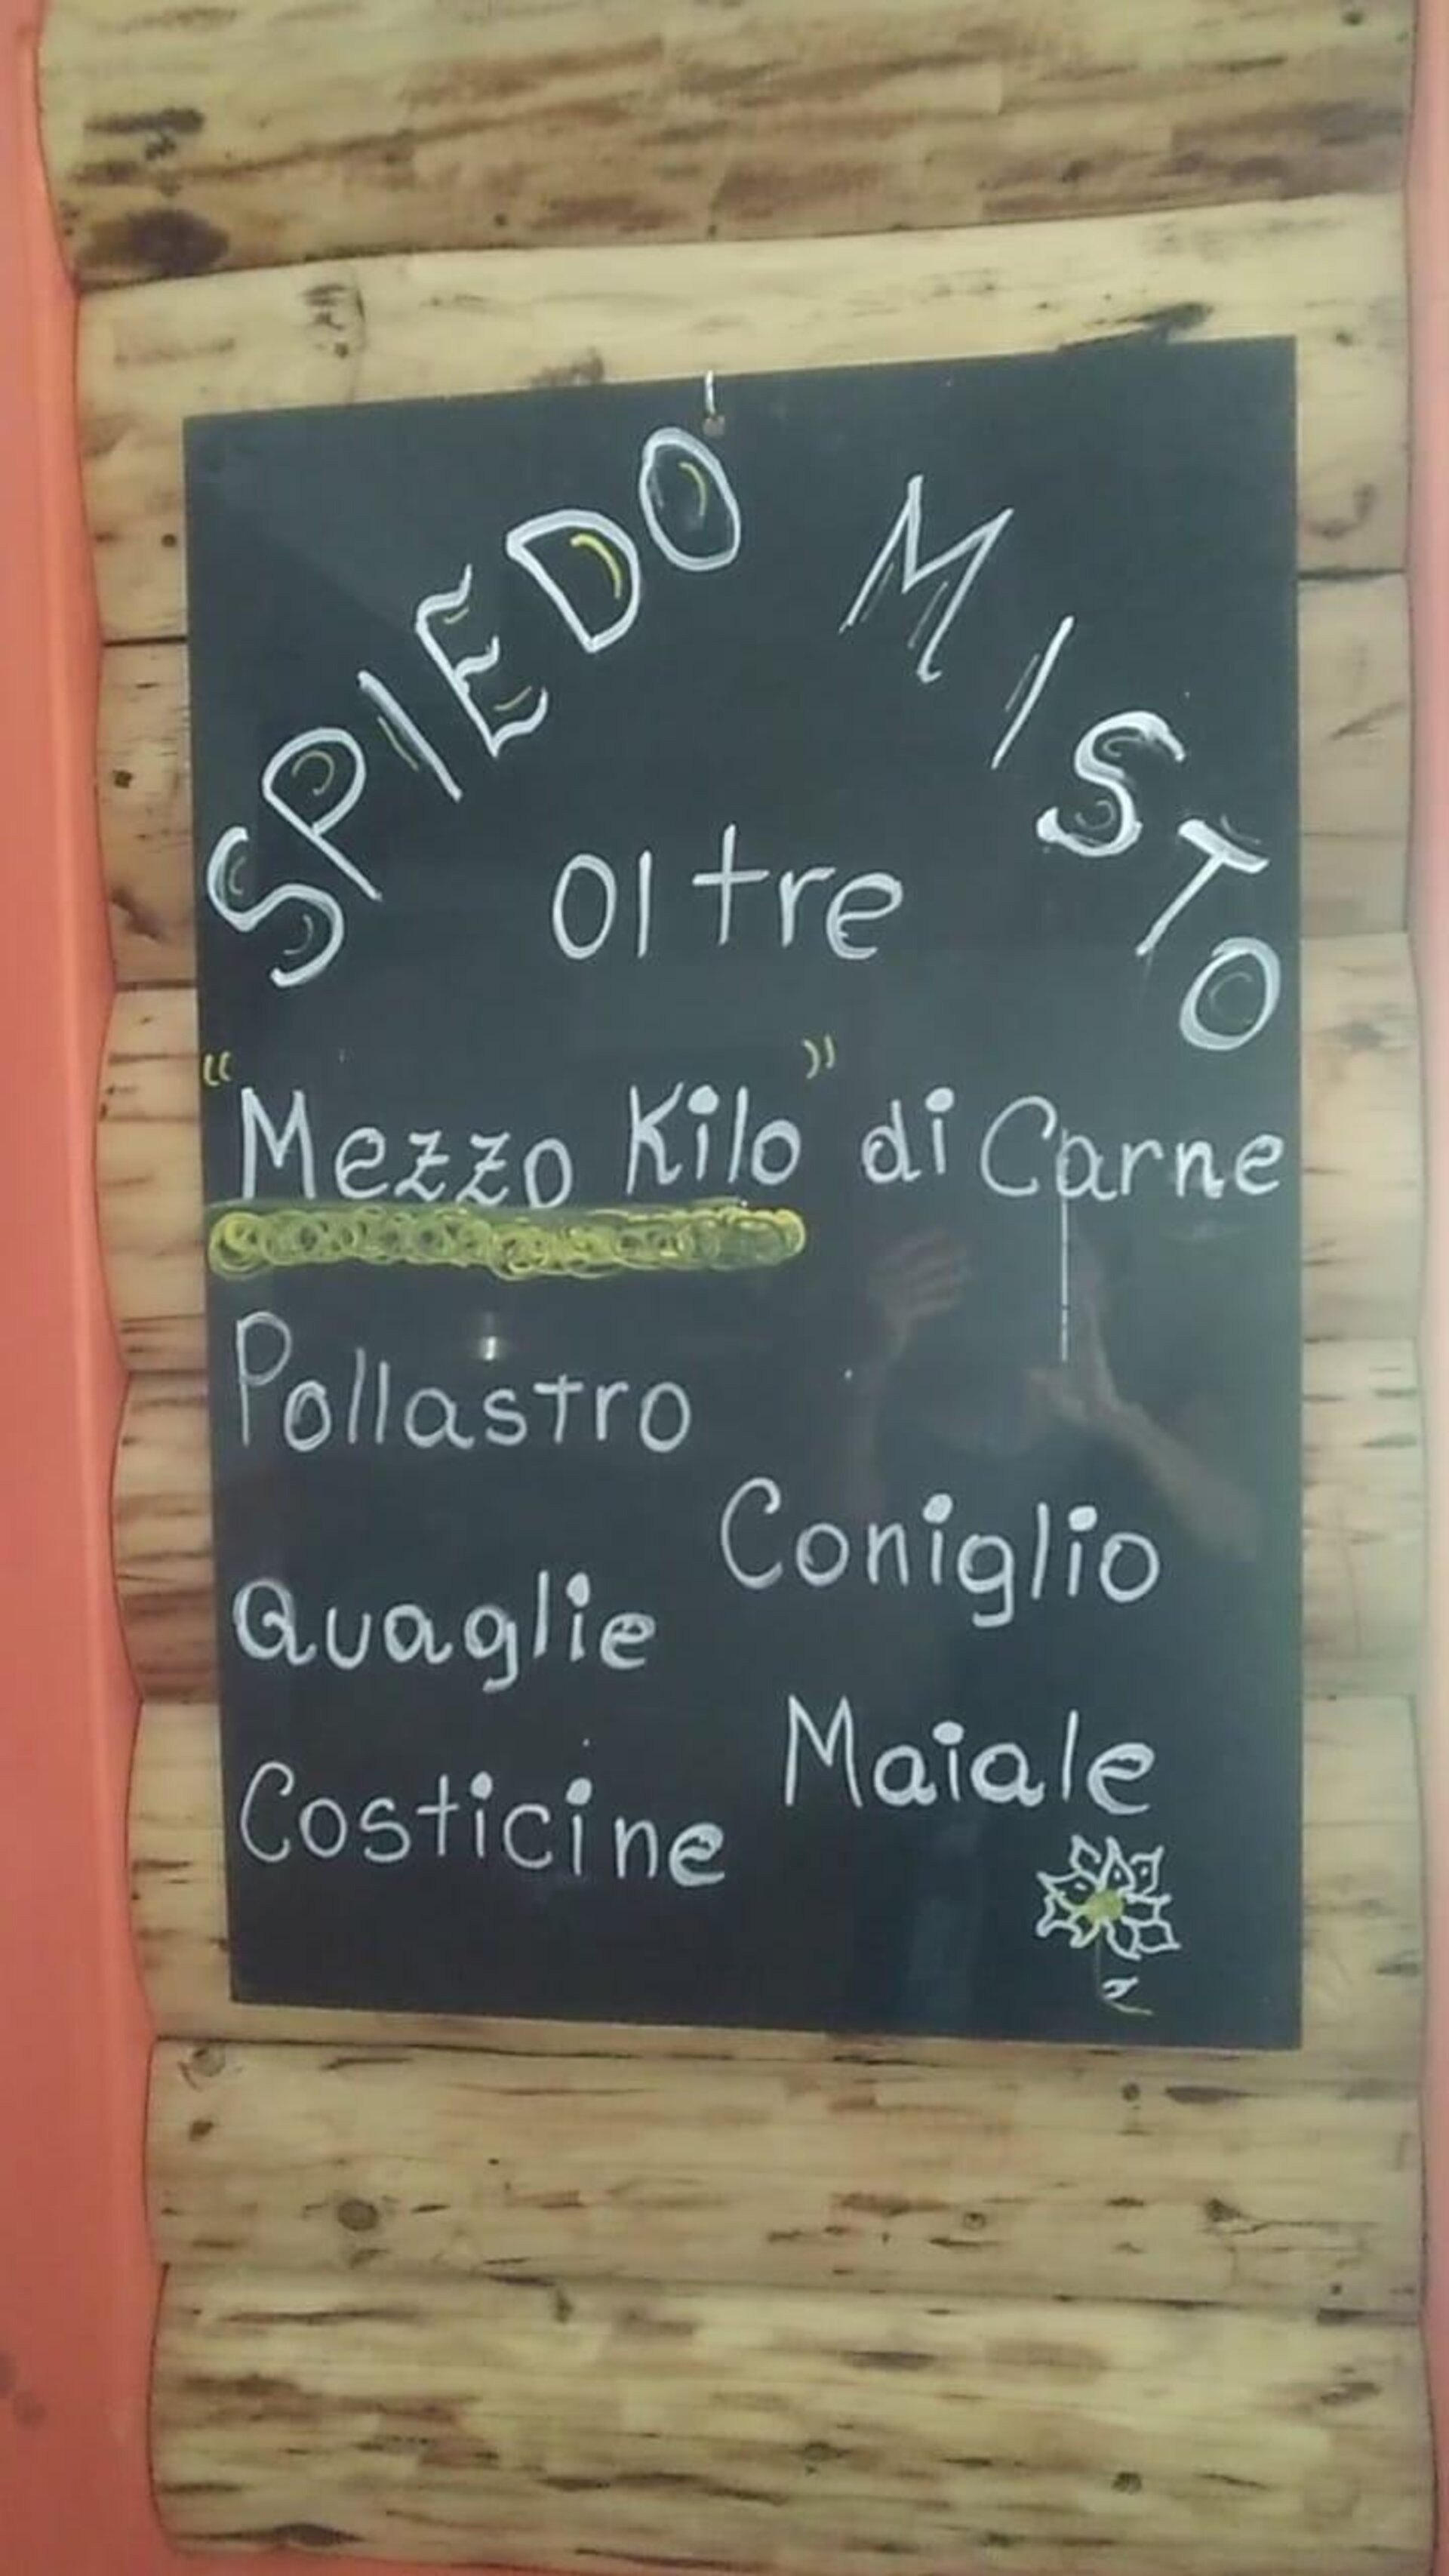 SPIEDO MISTO
oltre
"Mezzo Kilo" di Carne
Pollastro
Coniglio
Quaglie
Maiale
Costicine